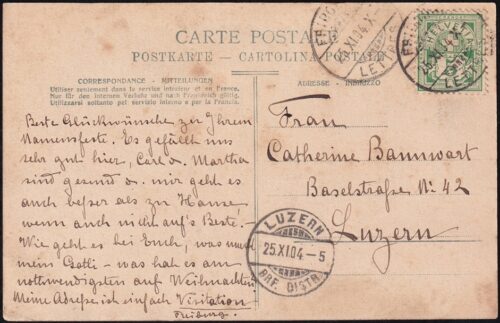 CARTE POSTALE
POSTKARTE - CARTOLINA POSTALE
CORRESPONDANCE - MITTEILUNGEN
Utiliser seulement dans le service intérieur et en France.
Nur für den internen Verkehr und nach Frankreich gültig.
Utilizzarsi soltanto pel servizio interno e per la Francia.
ADRESSE - INDIRIZZO
Beste Glückwünsche zu Ihrem
Namensfeste. Es gefällt uns
sehr gut hier, Carl u. Martha
sind gesund u. mir geht es
auch besser als zu Hause,
wenn auch nicht auf's Beste.-
Wie geht es bei Euch, was
mein Gotti - was hat es am
notwendigsten auf Weihnachten
Meine Adresse ist einfach Visitation
Freiburg.
Frau
Catherine Bannwart
Baselstraße No. 42
Luzern
LUZERN
25.XI.04-5
BRF. DISTR.
HELVETIA